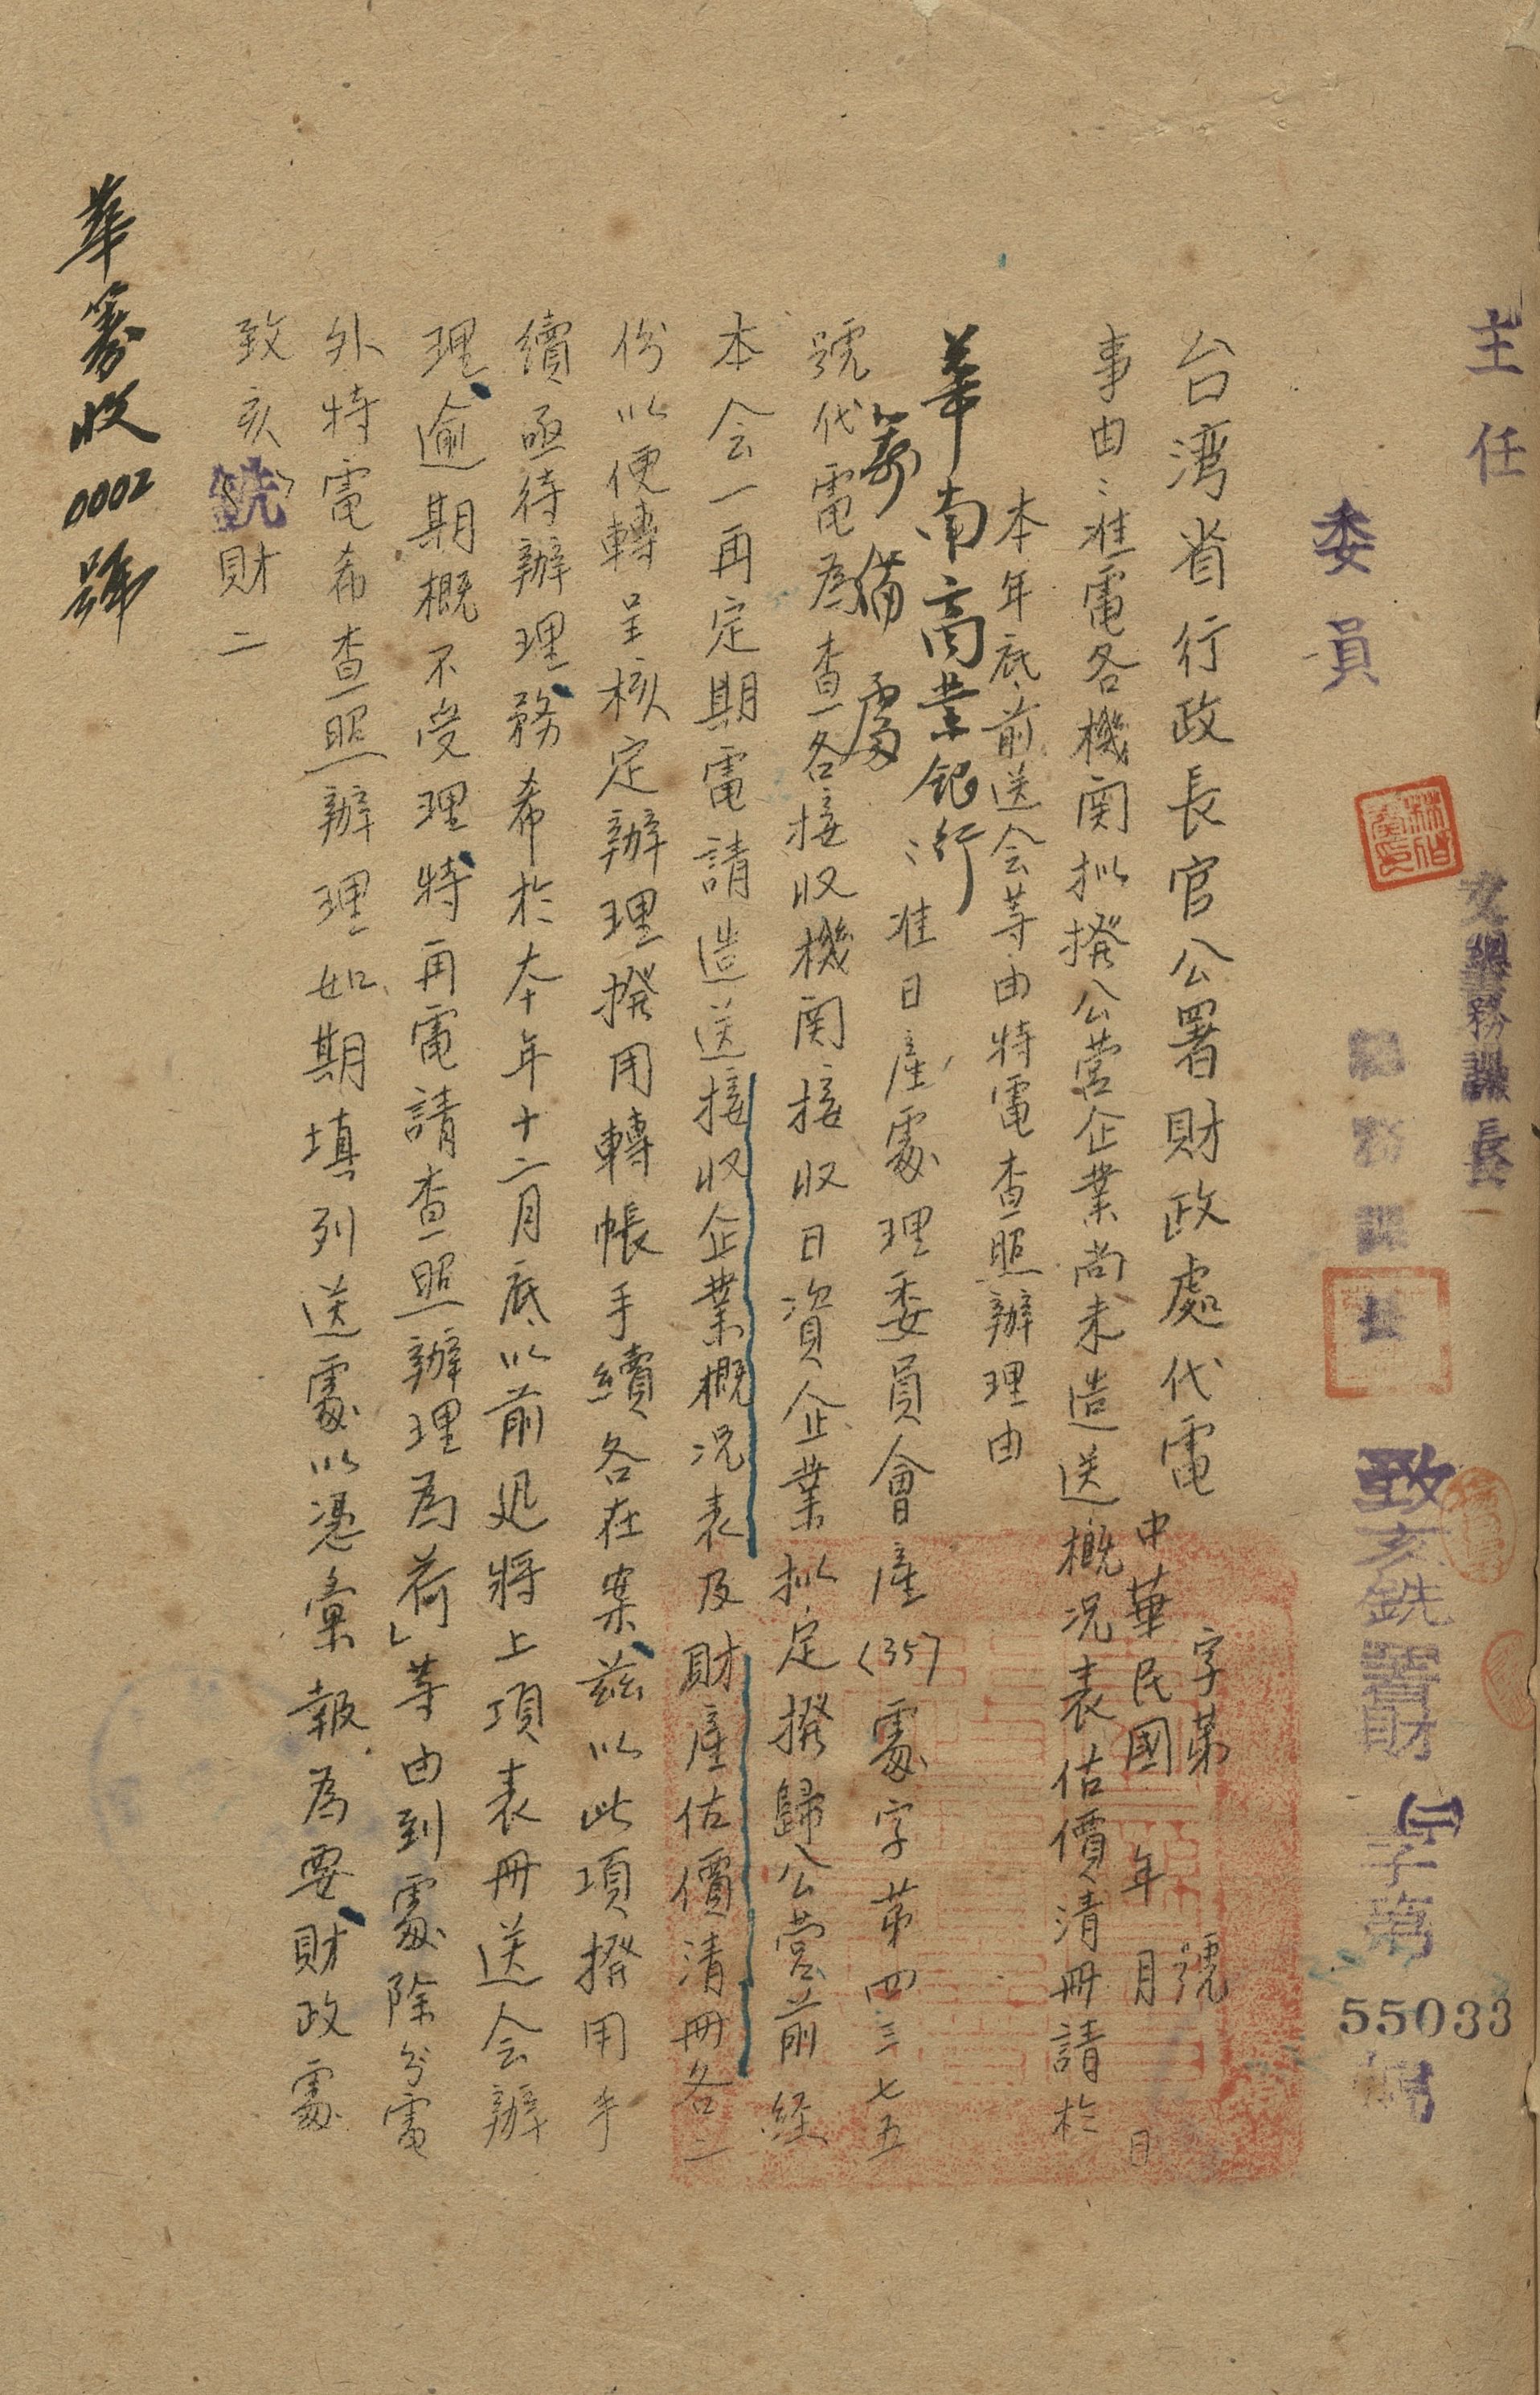 主任
文書課長
委員
致亥銑署財(二)字第55033號
台湾省行政長官公署財政處代電
字第 號
中華民國 年 月 日
事由：准電各機関拟撥公营企業尚未造送概况表估價清冊請於
本年底前送会等由特電查照辦理由
華南商業銀行
籌備處
：准日產處理委員會產(35)處字第四三七五
號代電為查各接収機関接収日資企業拟定撥歸公营前経
本会一再定期電請造送接収企業概况表及財產估價清冊各二
份以便轉呈核定辦理撥用轉帳手續各在案茲以此項撥用手
續亟待辦理務希於本年十二月底以前迅將上項表冊送会辦
理逾期概不受理特再電請查照辦理為荷」等由到處除分電
外特電希查照辦理如期填列送處以憑彙報為要財政處
致亥銑財二
華籌收0002號